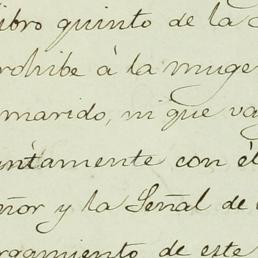 libro quinto de la
rohibe à la muge
marido, ni que va
untamente con él
eñor y la Señal de
rgamiento de este